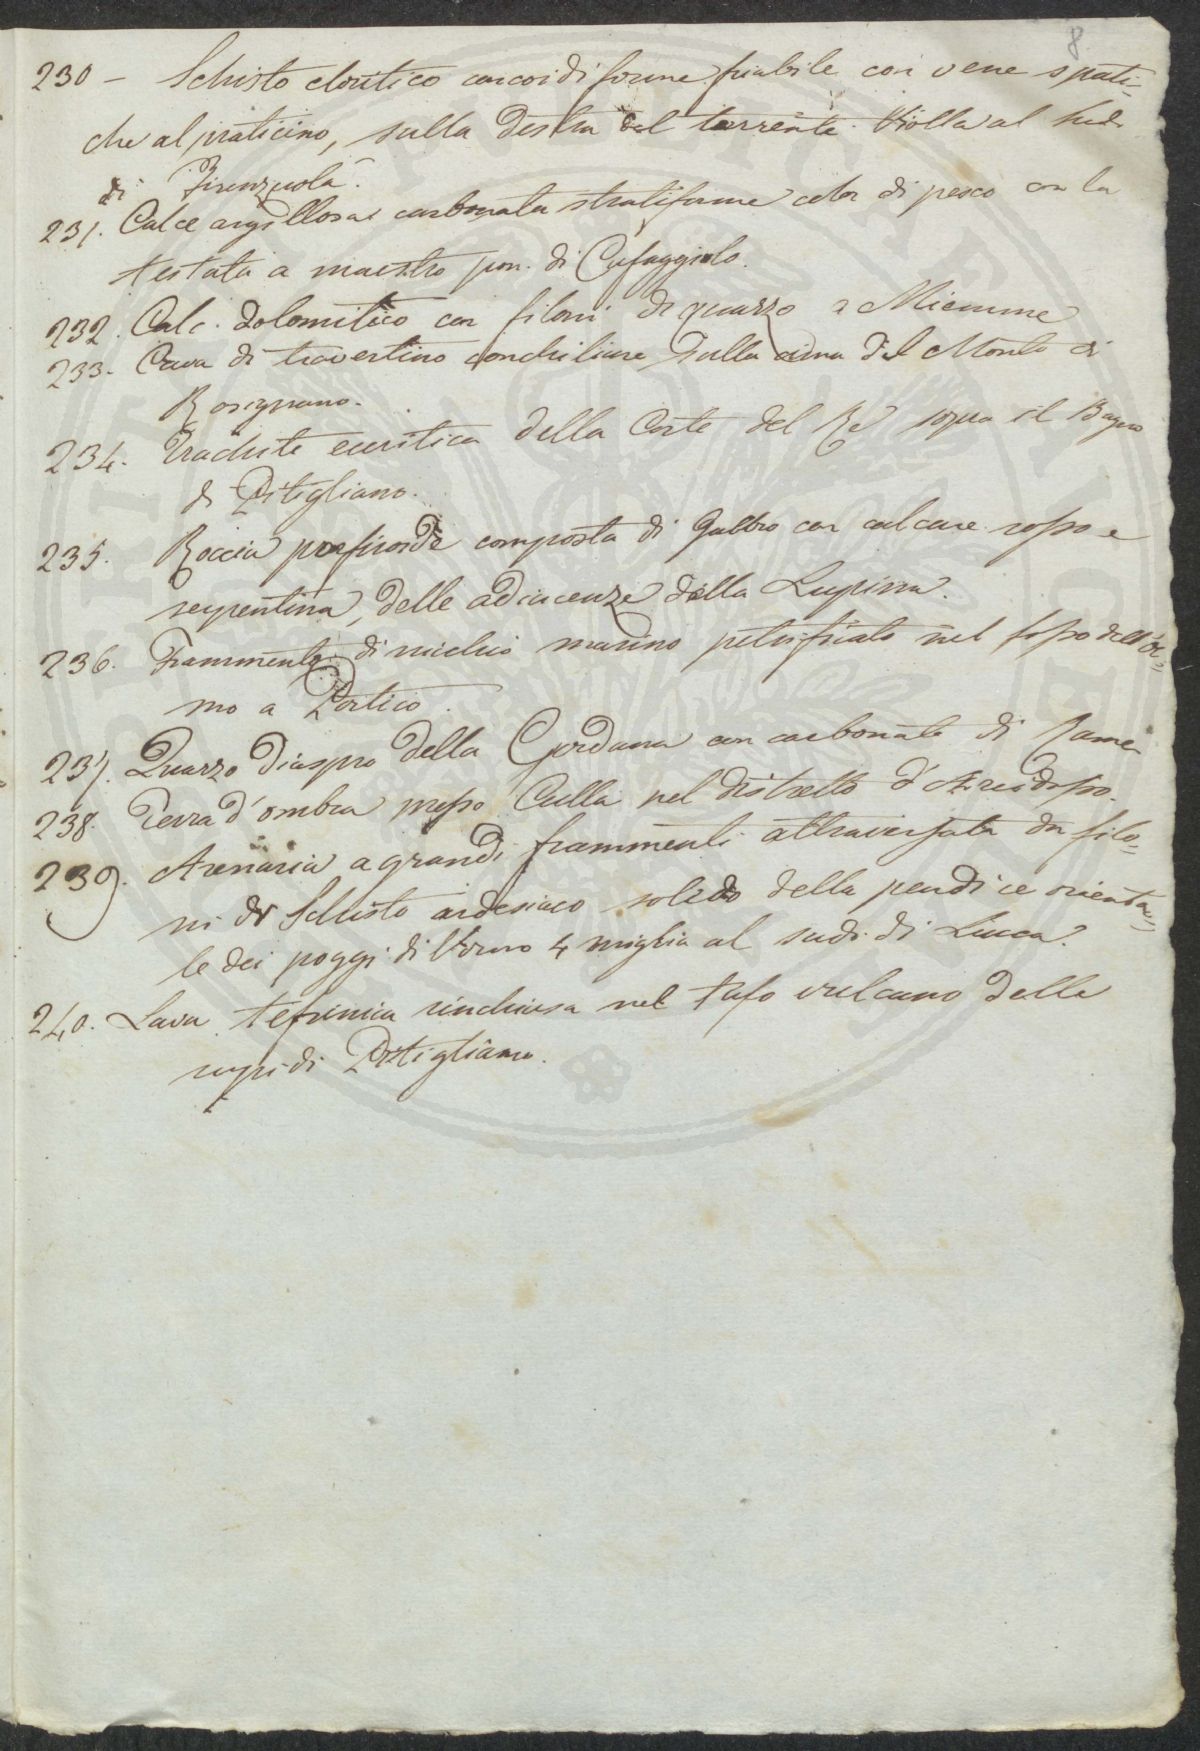 8
230 - Schisto cloritico concoidiforme friabile con vene spati-
che al praticino, sulla destra del torrente Violla al Sud.
di Firenzuola.
231. Calce argillosa carbonata stratiforme color di pesco con la
testata a maestro pon. di Cafaggiolo.
232. Calc. dolomitico con filoni di quarzo a Miemme
233. Cava di travertino conchiliare sulla cima del Monte di
Rosignano.
234. Trachite euritica della Corte del Re sopra il Bagno
di Pitigliano.
235. Roccia porfiroide composta di gabbro con calcare rosso e
serpentina, delle adiacenze della
236. Frammento di nichio marino petrificato nel fosso dell'Ol=
mo a Portico.
237. Quarzo Diaspro della Gordana con carbonato di Rame
238. Terra d'ombra presso Culla nel distretto d'Arcidosso.
239. Arenaria a grandi frammenti attraversata da filo=
ni di Schisto ardesiaco solido della pendice orienta=
le dei poggi di Vorno 4 miglia al sud. di Lucca.
240. Lava tefrinica rinchiusa nel tufo vulcano della
rupi di Pitigliano.